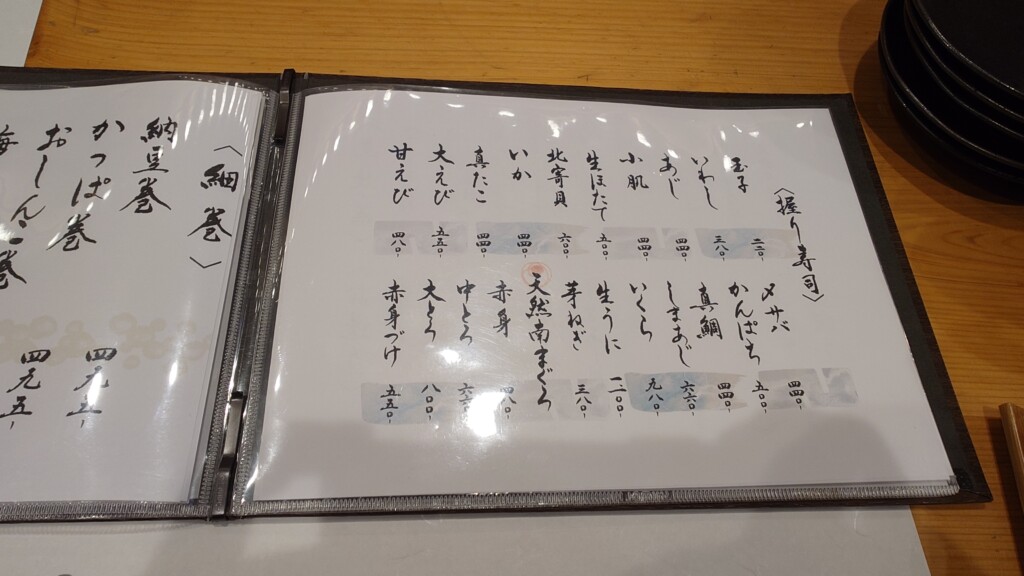 〈握り寿司〉
玉子 二二〇-
いわし 三八〇-
あじ 四四〇-
小肌 四四〇-
生ほたて 五〇〇-
北寄貝 六〇〇-
いか 四四〇-
真たこ 四四〇-
大えび 五五〇-
甘えび 四八〇-
〆サバ 四四〇-
かんぱち 五〇〇-
真鯛 四四〇-
しまあじ 六六〇-
いくら 九八〇-
生うに 一二〇〇-
芽ねぎ 三八〇-
天然南まぐろ
赤身 四八〇-
中とろ
大とろ 八〇〇-
赤身づけ 五五〇-
〈細巻〉
納豆巻
かっぱ巻 四九五-
おしんこ巻 四九五-